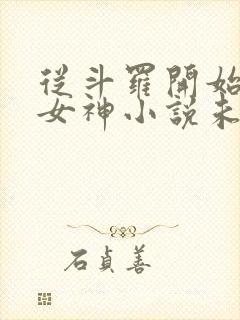 從斗羅開始
女神小說未
石貞善